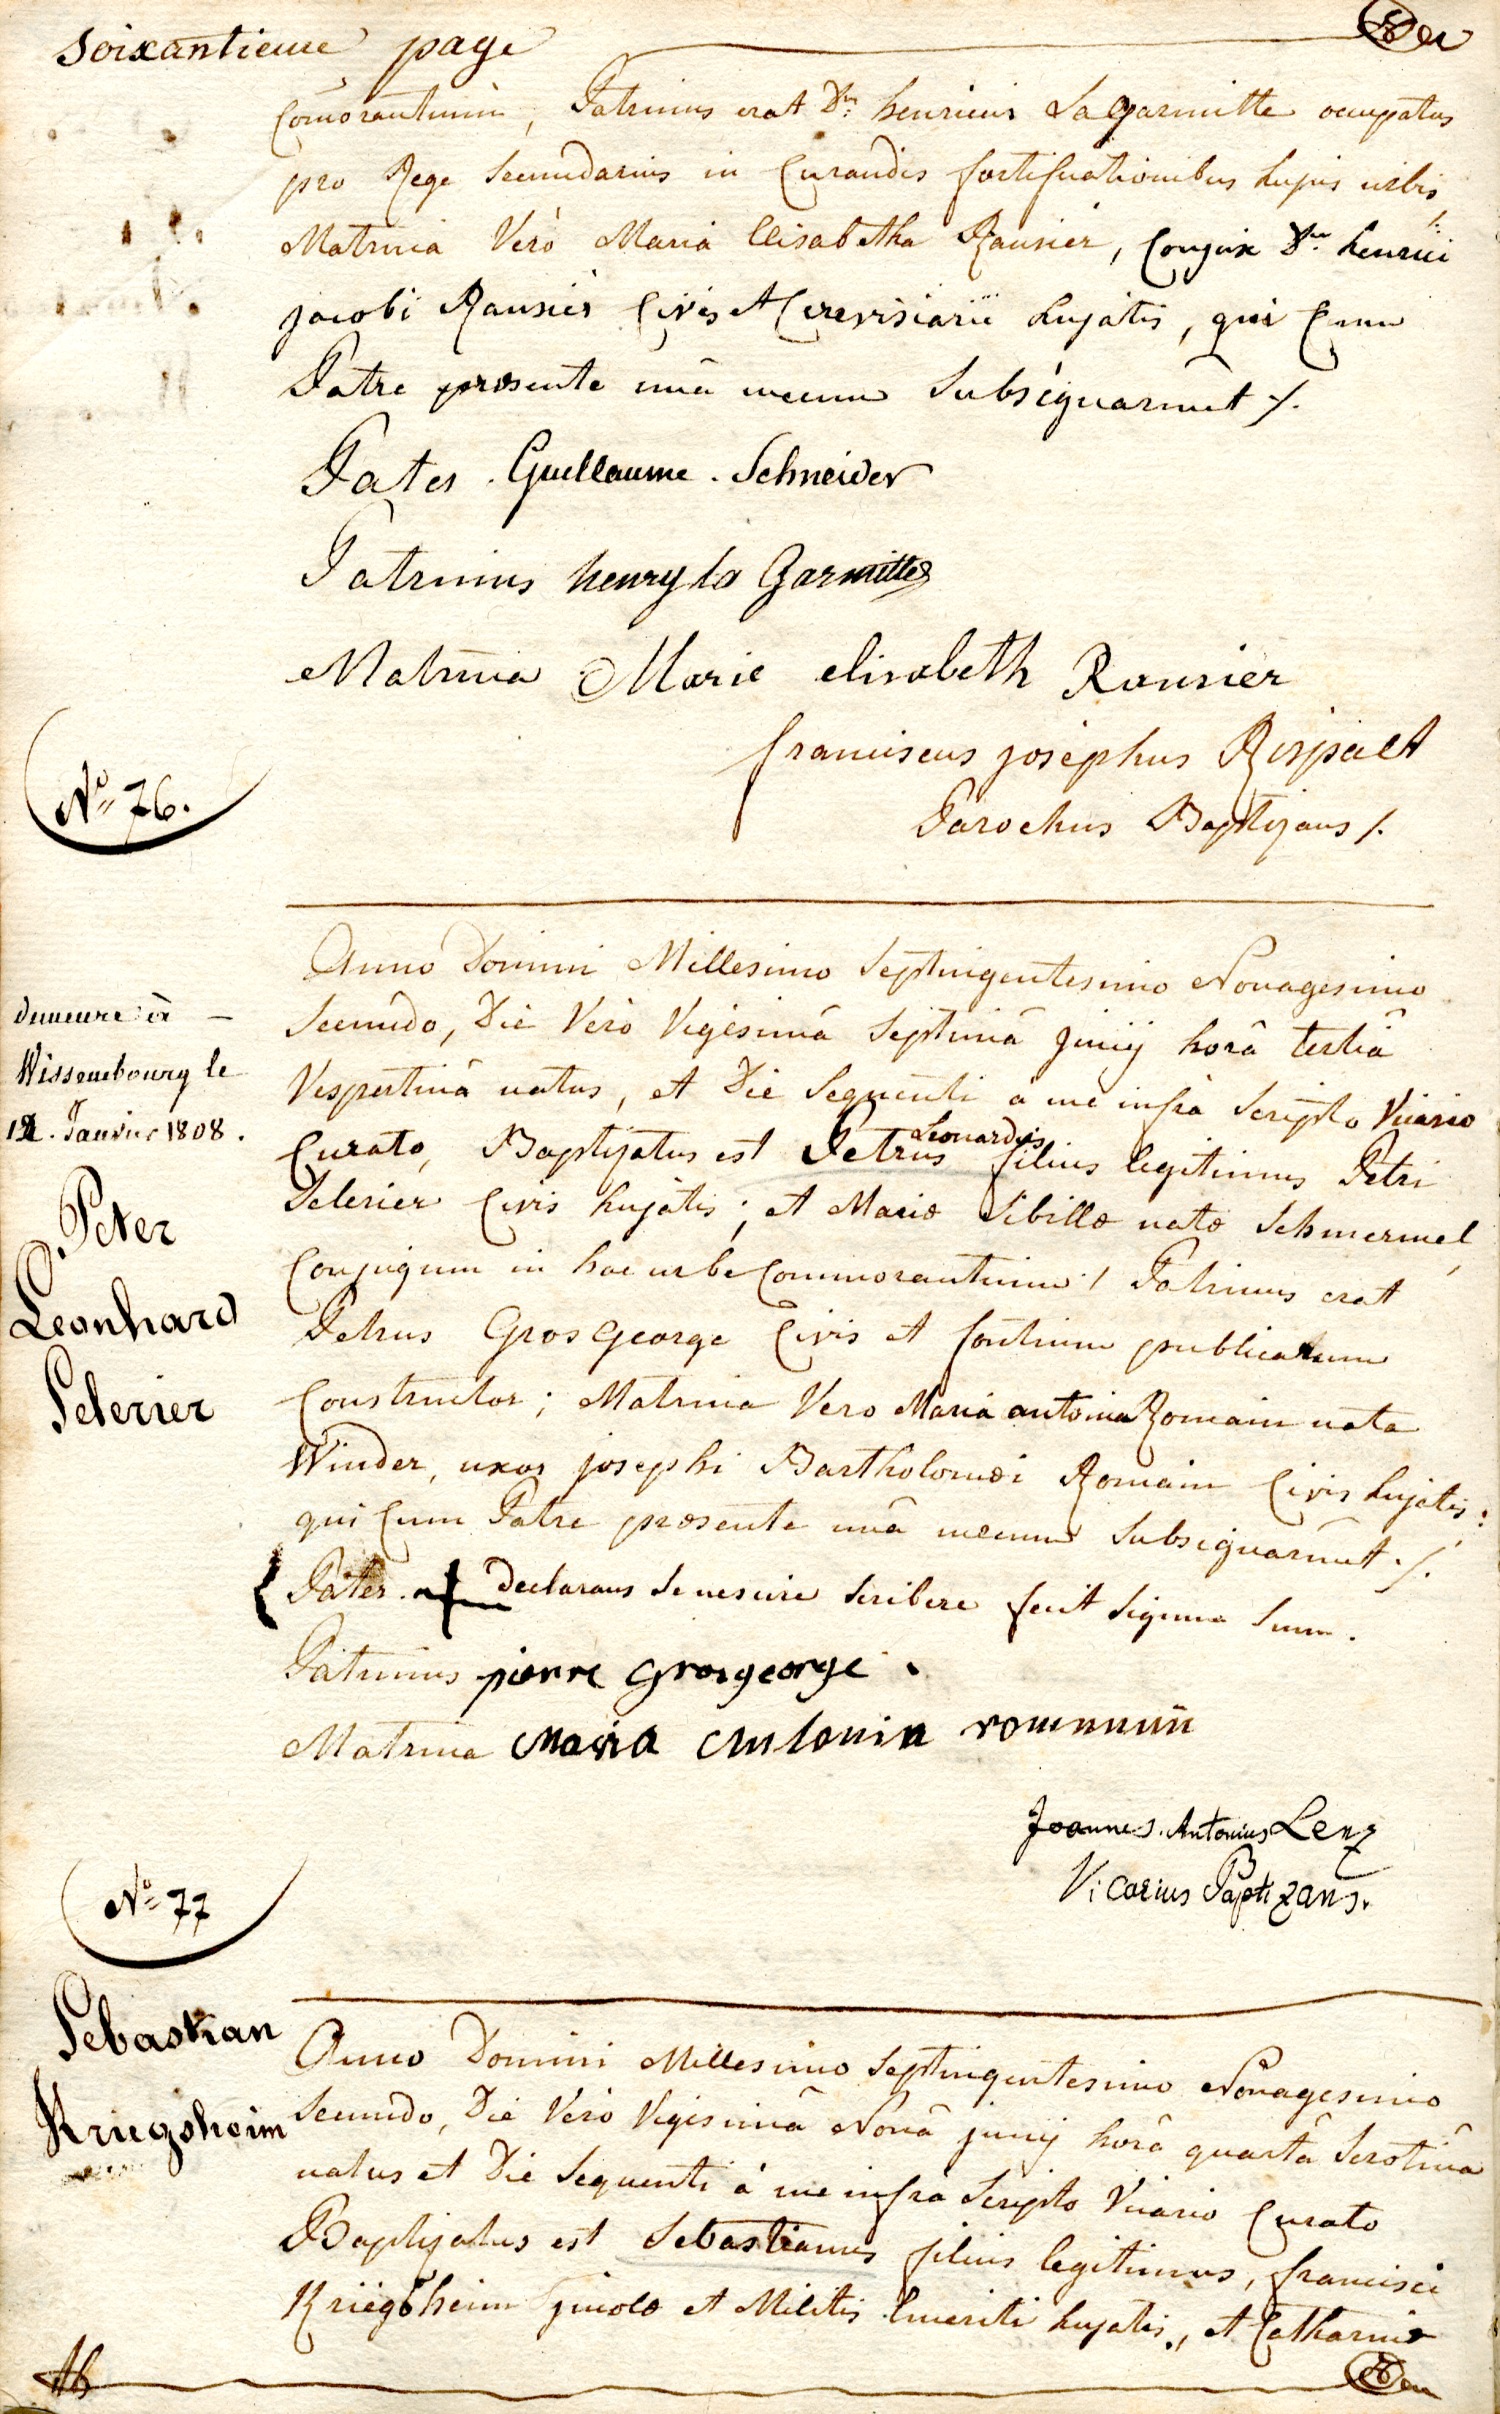 Soixantieme page
Comorantium, Patrinus erat Dns henricus Lagarmitte occupatus
pro Rege Secundarius in Curandis fortificationibus hujus urbis,
Matrina Verò Maria Elisabetha Rausier, Conjux Dni henrici
jacobi Rausier Civis et Cerevisiarii hujatis, qui Cum
Patre præsente unâ mecum Subsignarunt /.
Pater . Guillaume . Schneider
Patrinus henry la Garmitte
Matrina Marie elisabeth Rausier
franciscus josephus Rispalt
Parochus Baptizans /.
No 76.
Anno Domini Millesimo Septingentesimo Nonagesimo
Secundo, Die Verò Vigesimâ Septimâ Junij horâ tertiâ
Vespertinâ natus, et Die Sequenti à me infrà Scripto Vicario
Curato, Baptizatus est Petrus Leonardus filius legitimus Petri
Selerier Civis hujatis ; et Mariæ Sibillæ natæ Schmermel,
Conjugum in hac urbe Commorantium / Patrinus erat
Petrus GrosGeorge Civis et fontium publicarum
Constructor ; Matrina Vero Maria antonia Romain nata
Winder, uxor josephi Bartholomæi Romain Civis hujatis ;
qui Cum Patre præsente unâ mecum Subsignarunt ./.
Pater . + Declarans Se nescire Scribere fecit Signum Suum .
Patrinus pierre grosgeorge .
Matrina Maria Antonia
Joannes . Antonius Lenz
Vicarius Baptizans .
demeure à —
Wissembourg le
12 . Janvier 1808 .
Peter
Leonhard
Selerier
No 77
Sebastian
Kriegsheim
Anno Domini Millesimo Septingentesimo Nonagesimo
Secundo, Die Verò Vigesimâ Nonâ junij horâ quartâ Serotinâ
natus et Die Sequenti à me infrà Scripto Vicario Curato
Baptizatus est Sebastianus filius legitimus, francisci
Kriegsheim Incolæ et Militis Emeriti hujatis, et Catharinæ